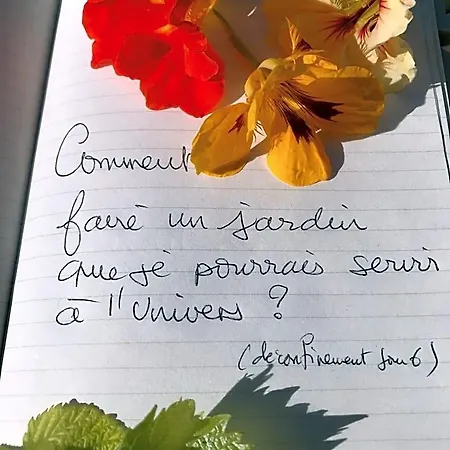 Comment
faire un jardin
que je pourrais servir
à l'Univers ?
(déconfinement jour 6)